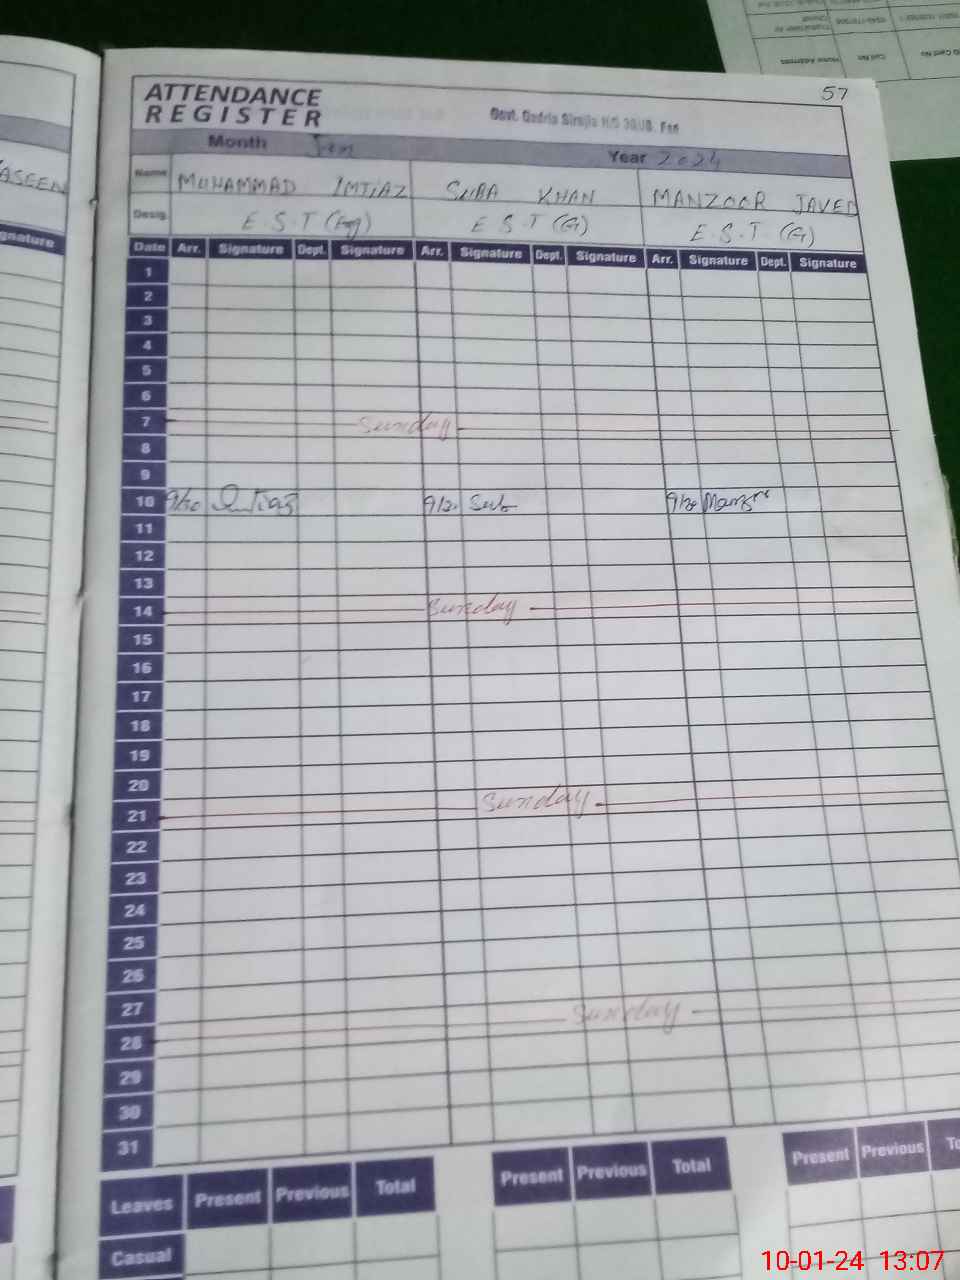 57
ATTENDANCE
REGISTER
Month Jan Year 2024
Name MUHAMMAD IMTIAZ SUBA KHAN MANZOOR JAVED
Desig. E.S.T (Eng) E.S.T (G) E.S.T (G)
Date Arr. Signature Dept. Signature Arr. Signature Dept. Signature Arr. Signature Dept. Signature
1
2
3
4
5
6
7 Sunday
8
9
10 9/30 Imtiaz 9/30 Sub 9/30 Manzoor
11
12
13
14 Sunday
15
16
17
18
19
20
21 Sunday
22
23
24
25
26
27
28 Sunday
29
30
31
Leaves Present Previous Total Present Previous Total Present Previous
Casual
10-01-24 13:07